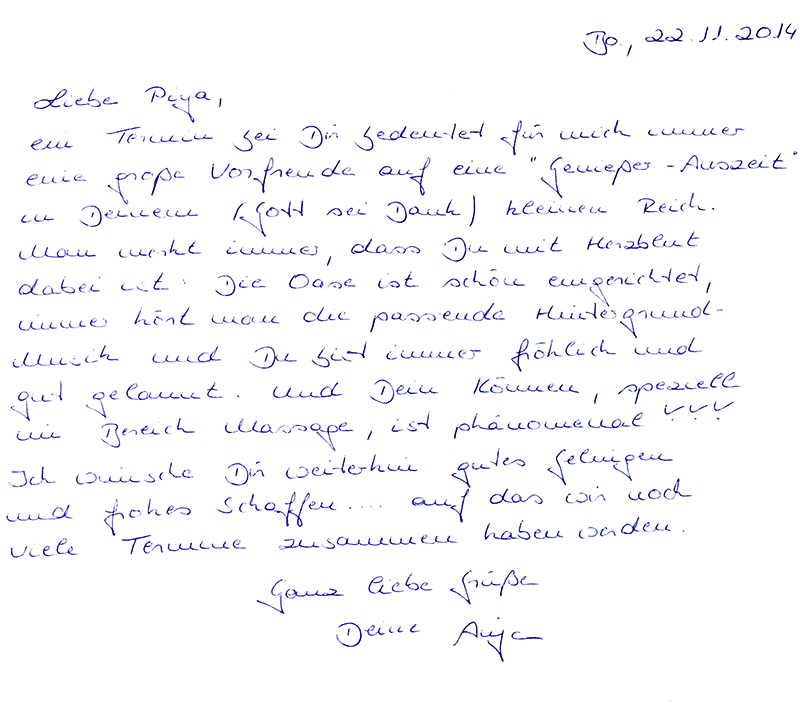 Bo., 22.11.2014
Liebe Piya,
ein Termin bei Dir bedeutet für mich immer
eine große Vorfreude auf eine "Genießer-Auszeit"
in Deinem (Gott sei Dank) kleinen Reich.
Man merkt immer, dass Du mit Herzblut
dabei ist: Die Oase ist schön eingerichtet,
immer hört man die passende Hintergrund-
Musik und Du bist immer fröhlich und
gut gelaunt. Und Dein Können, speziell
im Bereich Massage, ist phänomenal!!!
Ich wünsche Dir weiterhin gutes Gelingen
und frohes Schaffen.... auf das wir noch
viele Termine zusammen haben werden.
Ganz liebe Grüße
Deine Anja